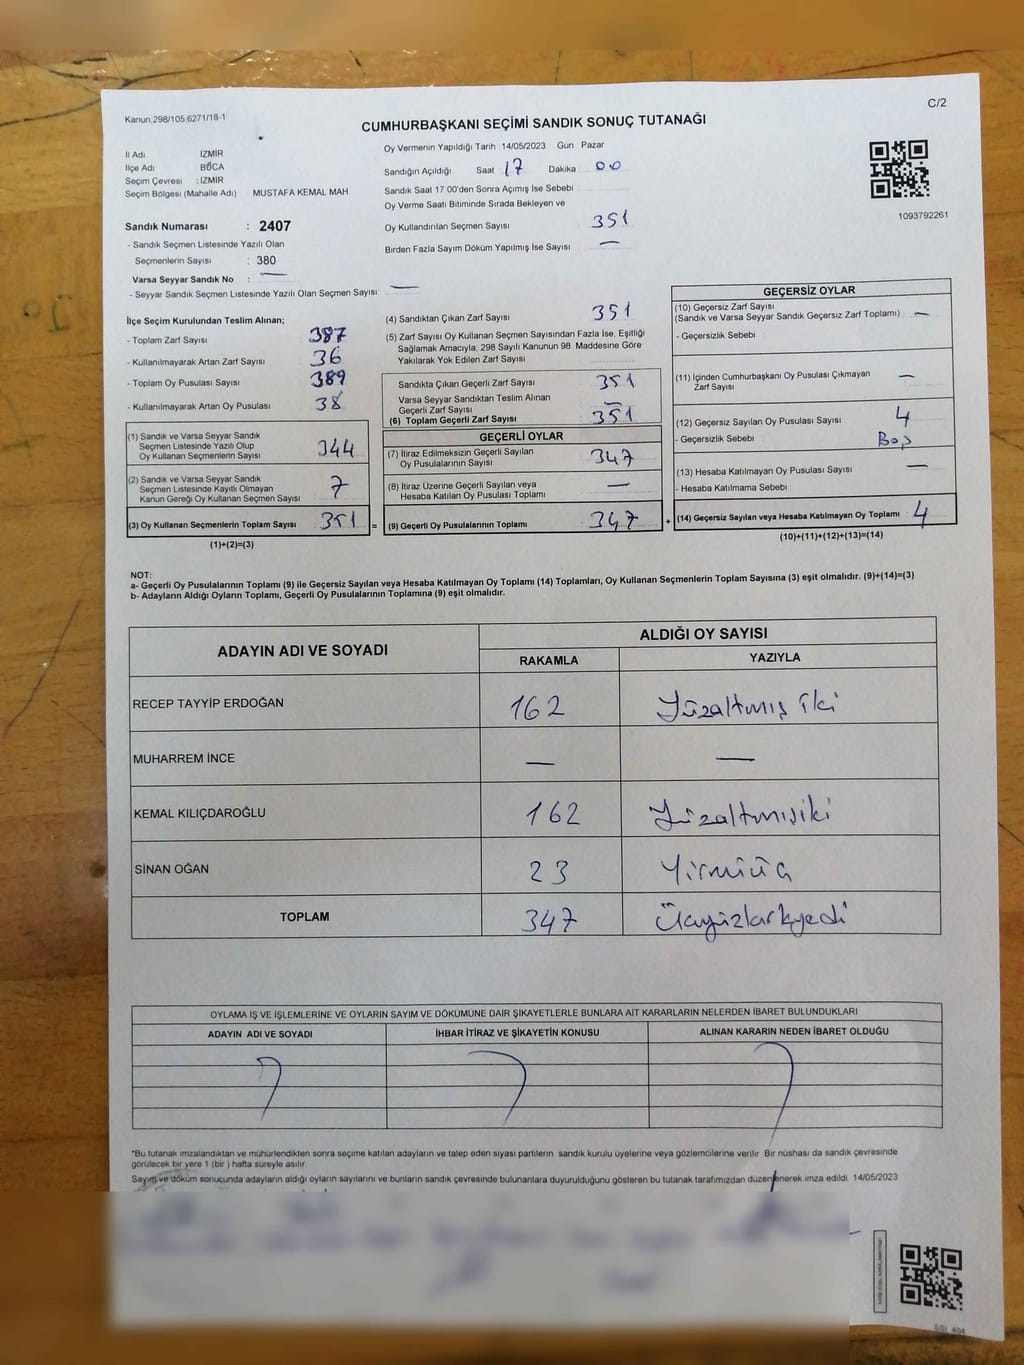 Kanun 298/105 6271/18-1
C/2
CUMHURBAŞKANI SEÇİMİ SANDIK SONUÇ TUTANAĞI
İl Adı İZMİR
İlçe Adı BUCA
Seçim Çevresi : İZMİR
Seçim Bölgesi (Mahalle Adı) MUSTAFA KEMAL MAH
Sandık Numarası : 2407
- Sandık Seçmen Listesinde Yazılı Olan
Seçmenlerin Sayısı : 380
Varsa Seyyar Sandık No : —
- Seyyar Sandık Seçmen Listesinde Yazılı Olan Seçmen Sayısı: —
Oy Vermenin Yapıldığı Tarih 14/05/2023 Gün Pazar
Sandığın Açıldığı Saat 17 Dakika 00
Sandık Saat 17 00'den Sonra Açımış İse Sebebi
Oy Verme Saati Bitiminde Sırada Bekleyen ve
Oy Kullandırılan Seçmen Sayısı 351
Birden Fazla Sayım Döküm Yapılmış İse Sayısı —
1093792261
İlçe Seçim Kurulundan Teslim Alınan;
- Toplam Zarf Sayısı 387
- Kullanılmayarak Artan Zarf Sayısı 36
- Toplam Oy Pusulası Sayısı 389
- Kullanılmayarak Artan Oy Pusulası 38
(1) Sandık ve Varsa Seyyar Sandık
Seçmen Listesinde Yazılı Olup
Oy Kullanan Seçmenlerin Sayısı 344
(2) Sandık ve Varsa Seyyar Sandık
Seçmen Listesinde Kayıtlı Olmayan
Kanun Gereği Oy Kullanan Seçmen Sayısı 7
(3) Oy Kullanan Seçmenlerin Toplam Sayısı : 351 =
(1)+(2)=(3)
(4) Sandıktan Çıkan Zarf Sayısı 351
(5) Zarf Sayısı Oy Kullanan Seçmen Sayısından Fazla İse, Eşitliği
Sağlamak Amacıyla, 298 Sayılı Kanunun 98. Maddesine Göre
Yakılarak Yok Edilen Zarf Sayısı
Sandıkta Çıkan Geçerli Zarf Sayısı 351
Varsa Seyyar Sandıktan Teslim Alınan
Geçerli Zarf Sayısı —
(6) Toplam Geçerli Zarf Sayısı 351
GEÇERLİ OYLAR
(7) İtiraz Edilmeksizin Geçerli Sayılan
Oy Pusulalarının Sayısı 347
(8) İtiraz Üzerine Geçerli Sayılan veya
Hesaba Katılan Oy Pusulası Toplamı —
(9) Geçerli Oy Pusulalarının Toplamı : 347 +
GEÇERSİZ OYLAR
(10) Geçersiz Zarf Sayısı
(Sandık ve Varsa Seyyar Sandık Geçersiz Zarf Toplamı) —
- Geçersizlik Sebebi
(11) İçinden Cumhurbaşkanı Oy Pusulası Çıkmayan
Zarf Sayısı —
(12) Geçersiz Sayılan Oy Pusulası Sayısı 4
- Geçersizlik Sebebi Boş
(13) Hesaba Katılmayan Oy Pusulası Sayısı —
- Hesaba Katılmama Sebebi
(14) Geçersiz Sayılan veya Hesaba Katılmayan Oy Toplamı : 4
(10)+(11)+(12)+(13)=(14)
NOT:
a- Geçerli Oy Pusulalarının Toplamı (9) ile Geçersiz Sayılan veya Hesaba Katılmayan Oy Toplamı (14) Toplamları, Oy Kullanan Seçmenlerin Toplam Sayısına (3) eşit olmalıdır. (9)+(14)=(3)
b- Adayların Aldığı Oyların Toplamı, Geçerli Oy Pusulalarının Toplamına (9) eşit olmalıdır.
ADAYIN ADI VE SOYADI ALDIĞI OY SAYISI
RAKAMLA YAZIYLA
RECEP TAYYİP ERDOĞAN 162 Yüzaltmış iki
MUHARREM İNCE — —
KEMAL KILIÇDAROĞLU 162 Yüzaltmışiki
SİNAN OĞAN 23 Yirmiüç
TOPLAM 347 Üçyüzkırkyedi
OYLAMA İŞ VE İŞLEMLERİNE VE OYLARIN SAYIM VE DÖKÜMÜNE DAİR ŞİKAYETLERLE BUNLARA AİT KARARLARIN NELERDEN İBARET BULUNDUKLARI
ADAYIN ADI VE SOYADI İHBAR İTİRAZ VE ŞİKAYETİN KONUSU ALINAN KARARIN NEDEN İBARET OLDUĞU
*Bu tutanak imzalandıktan ve mühürlendikten sonra seçime katılan adayların ve talep eden siyasi partilerin sandık kurulu üyelerine veya gözlemcilerine verilir. Bir nüshası da sandık çevresinde
görülecek bir yere 1 (bir ) hafta süreyle asılır.
Sayım ve döküm sonucunda adayların aldığı oyların sayılarını ve bunların sandık çevresinde bulunanlara duyurulduğunu gösteren bu tutanak tarafımızdan düzenlenerek imza edildi. 14/05/2023